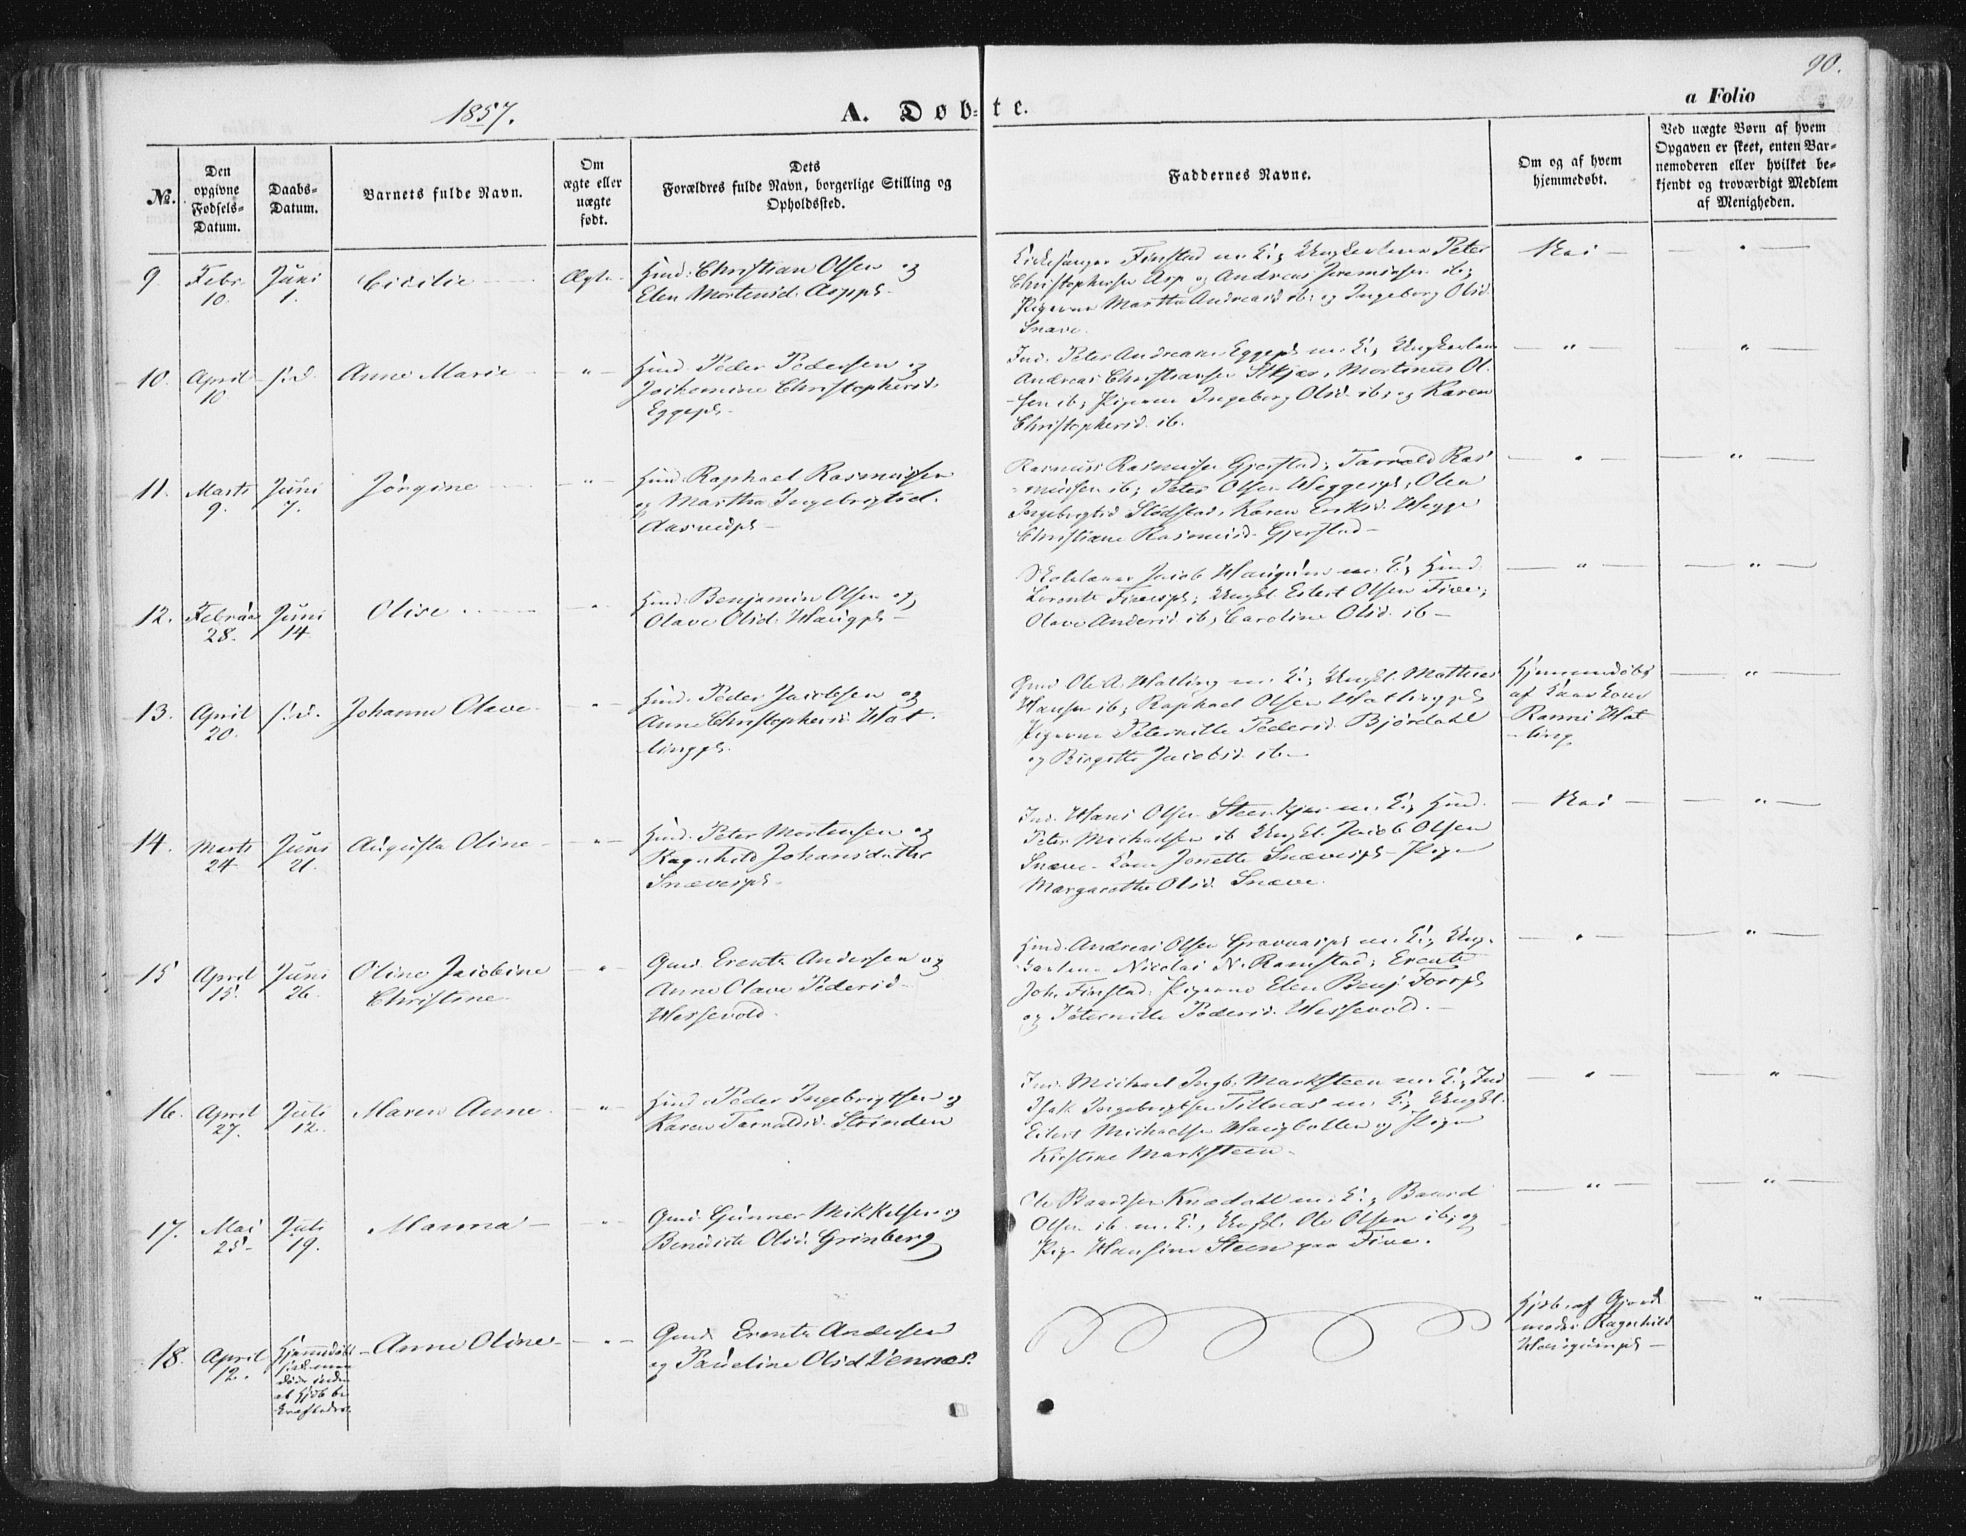 90.
1857.
A. Døbte.
a Folio
No.
Den opgivne Fødsels-Datum.
Daabs-Datum.
Barnets fulde Navn.
Om ægte eller uægte født.
Dets Forældres fulde Navn, borgerlige Stilling og Opholdssted.
Faddernes Navne.
Om og af hvem hjemmedøbt.
Ved uægte Børn af hvem Opgaven er skeet, enten Barnemoderen eller hvilket bekjendt og troværdigt Medlem af Menigheden.
9. Febr. 10. Juni 1. Cicilie Ægte Huusd. Christian Olsen og
Elen Mortensd. Asppl.
Kirkesanger Finstad m. K.; Ungkarlene Peter
Christophersen Asp og Andreas Jeremiasen ib;
Pigerne Martha Andreasd. ib; og Ingeborg Olsd.
Snave.
Nei
10. April 10 s. d. Anne Marie " Huusd. Peder Pedersen og
Jochomine Christophersd.
Eggepl.
Ind. Peter Andreasen Eggepl. m. K.; Ungkarlene
Andreas Christiansen Skjær, Mortinus Ol-
sen ib; Pigerne Ingeborg Olsd. ib; og Karen
Christophersd. ib.
11. Marts 9. Juni 7. Jørgine " Huusd. Raphael Rasmussen
og Martha Ingebrigtsd.
Aasveispl.
Rasmus Rasmusen Gjerstad; Tarrald Ras-
mussen ib; Peter Olsen Weggespl; Olea
Ingebrigtsd. Stodstad, Karen Eriksd. Wegge
Christiane Rasmusd. Gjerstad
12. Februar 28. Juni 14 Olise " Huusd. Benjamin Olsen og
Olave Olsd. Haugpl.
Skolelærer Jacob Haugum m. K.; Huusd.
Lorents Fivespl; Ungkl. Eilert Olsen Five;
Olave Andersd. ib; Caroline Olsd. ib
13. April 20. s. d. Johanne Olave " Huusd. Peder Jacobsen og
Anne Christophersd. Hat-
lingpl.
Gmd. Ole A. Hatling m. K.; Ungkl. Mathias
Hansen ib; Raphael Olsen Hatlingpl
Pigerne Peternille Pedersd. Bjørdahl
og Birgitte Jacobsd. ib
Hjemmedøbt
af
Ranni Hat-
ling
14. Marts 24. Juni 21. Augusta Oline " Huusd. Peter Mortensen og
Ragnhild Johansdatter
Snavespl.
Ind. Hans Olsen Steenkjær m. K.; Huusd.
Peter Michaelsen ib Ungkl. Jacob Olsen
Snave. Kone Jonette Snavespl. Pige
Margarethe Olsd. Snave.
Nei
15 April 15. Juni 26. Oline Jacobine
Christine " Gmd. Erents Andersen og
Anne Olave Pedersd.
Hessevold.
Huusd. Andreas Olsen Gravaaspl m. K.; Ung-
karlene Nicolai N. Ramstad; Erents
Joh. Finstad; Pigerne Elen Benj. Forrpl
og Peternille Pedersd. Hessevold.
16. April 27. Juli 12. Maren Anne " Huusd. Peder Ingebrigtsen og
Karen Tarraldsd. Strinden
Ind. Michael Ingb. Marksteen m. K.; Ind
Isak Ingebrigtsen Tillnæs m. K.; Ungkl.
Eilert Michaelsen Haugbollen og Pige
Kirstine Marksteen.
17. Mai 25. Juli 19. Manna " Gmd. Gunner Mikkelsen og
Benedicte Olsd. Grinberg
Ole Baardsen Knædahl m. K.; Baard
Olsen ib. m. K.; Ungkl. Ole Olsen ib; og
Pige Hansine Steen paa Five.
18. April 12. Hjemmedøbt
Anne Oline " Gmd. Erents Andersen
og Pauline Olsd. Vennes.
Hjdb. af Gjord-
moder Ragnhild
Haugumpl